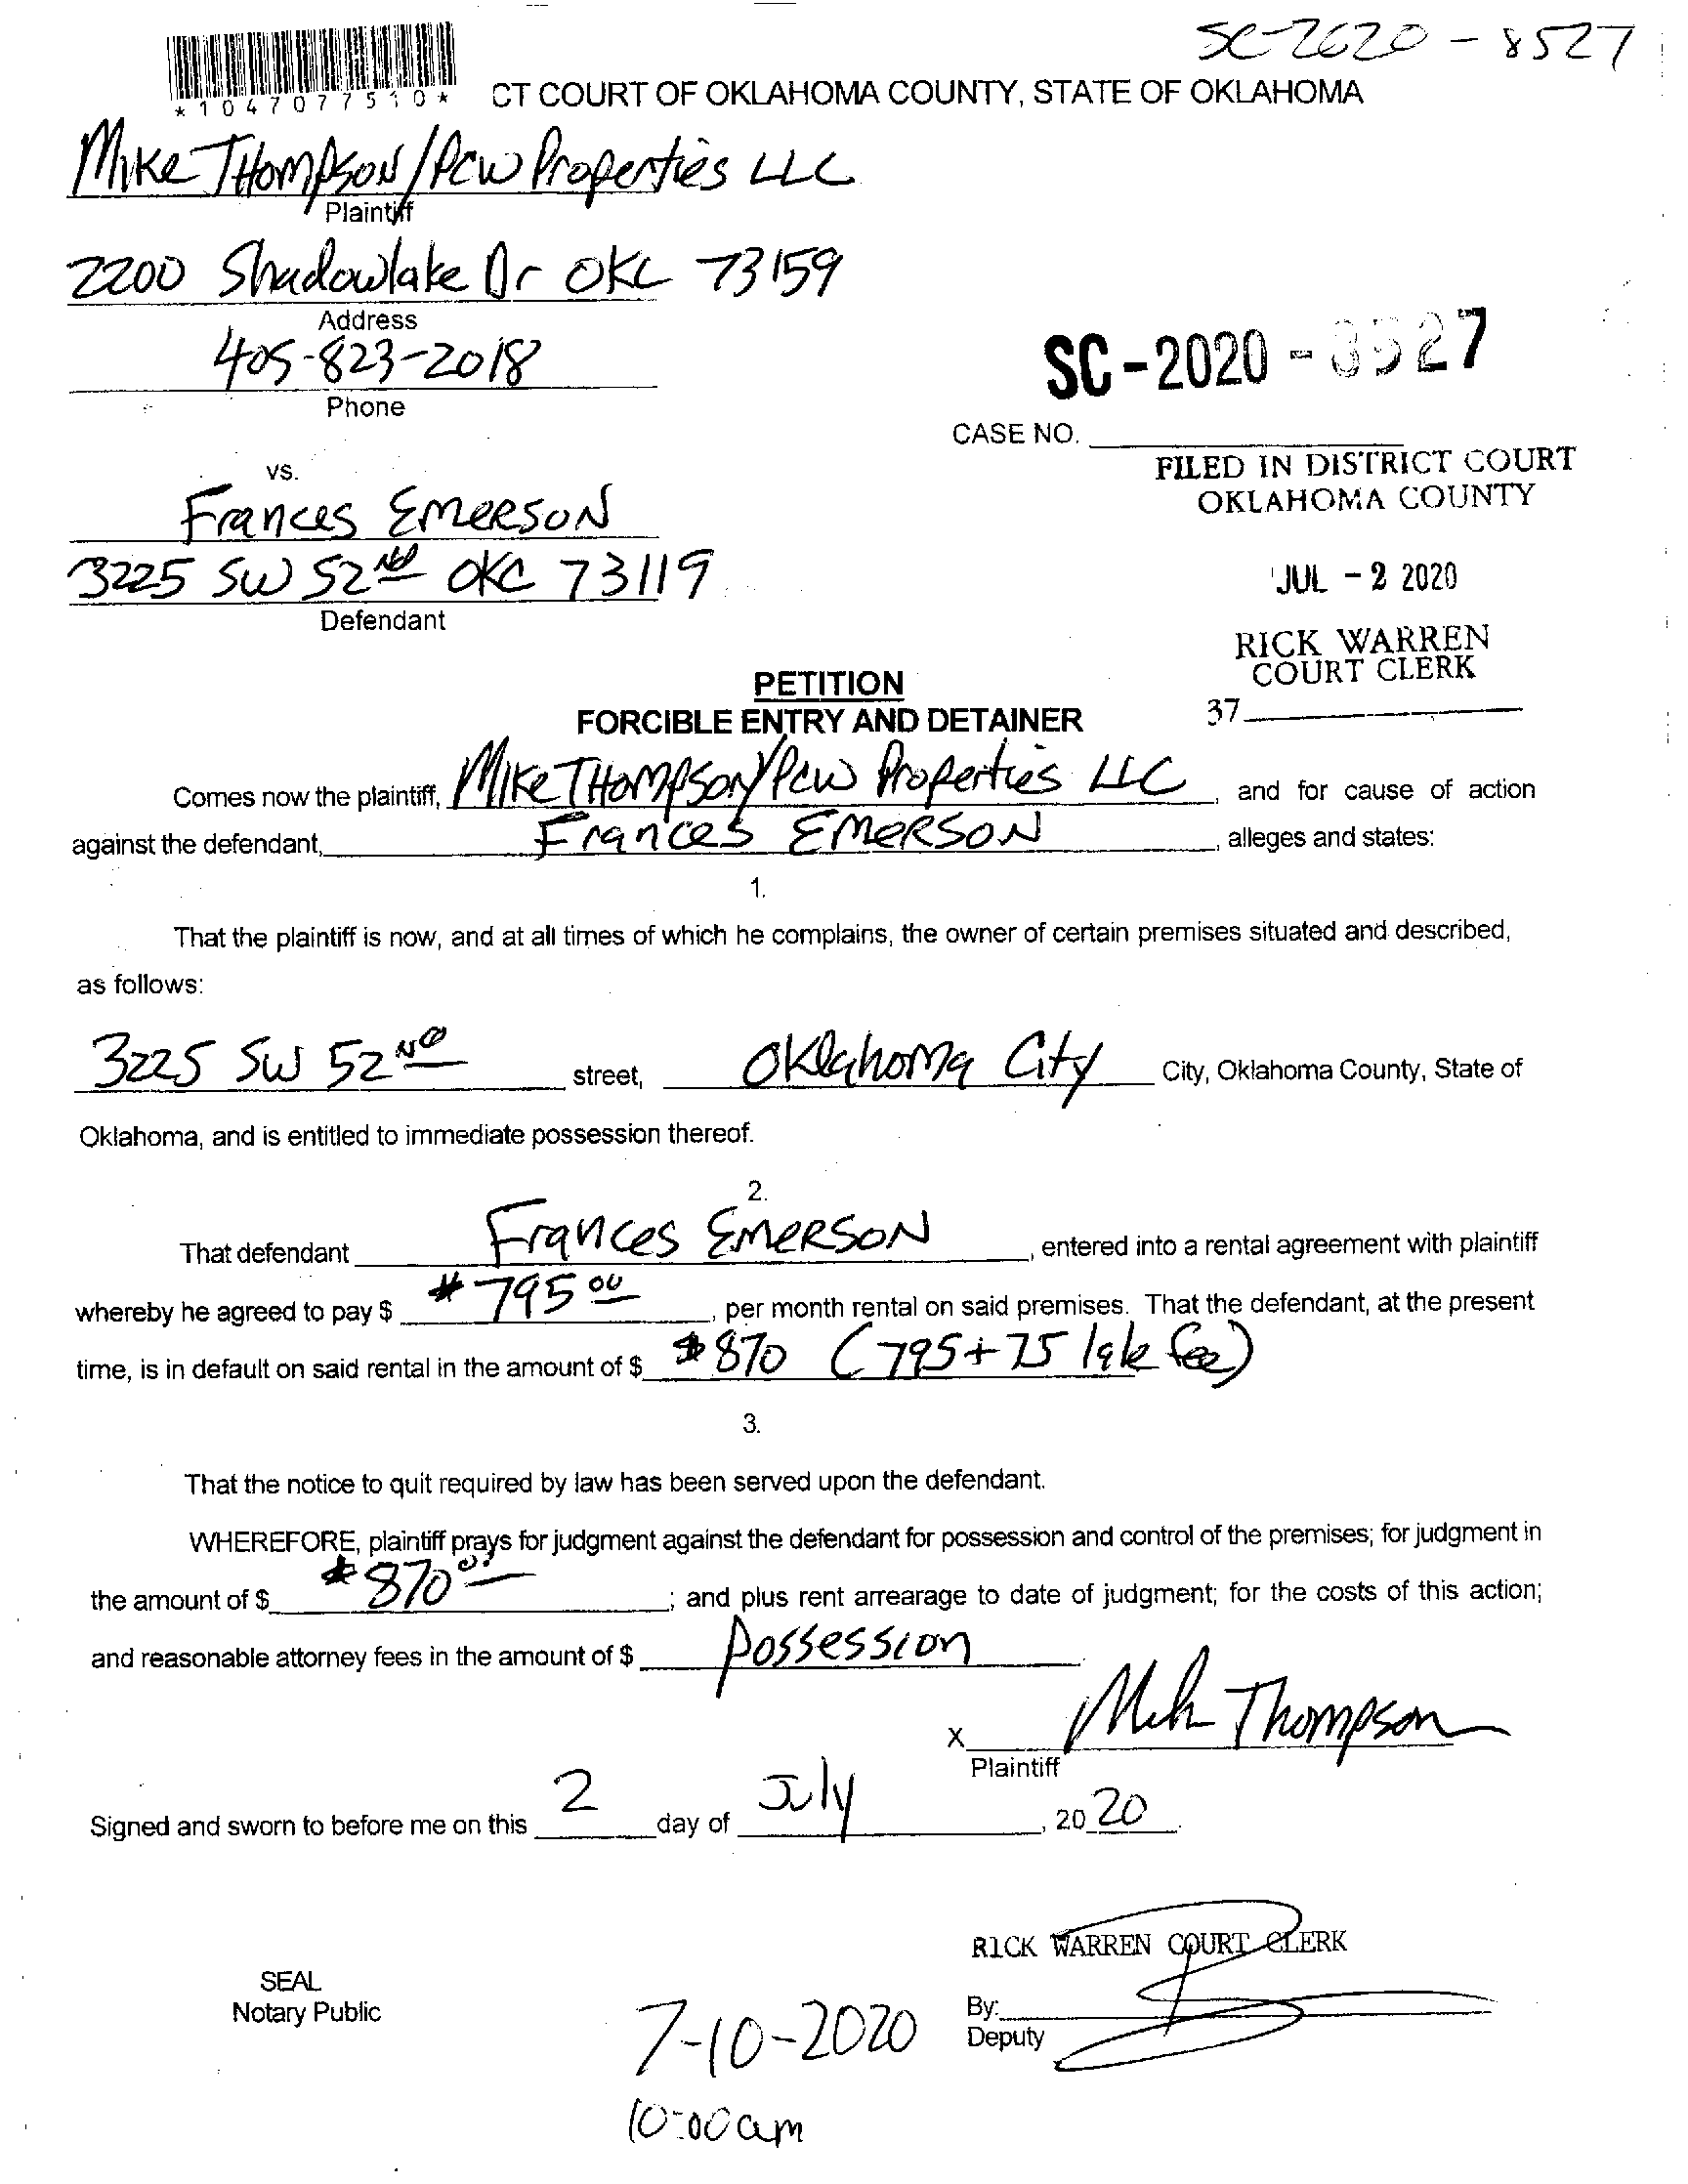 SC-2020 - 8527
*1047077510*
CT COURT OF OKLAHOMA COUNTY, STATE OF OKLAHOMA
Mike Thompson/PCW Properties LLC
Plaintiff
2200 Shadowlake Dr OKC 73159
Address
405-823-2018
Phone
SC-2020-8527
CASE NO.
FILED IN DISTRICT COURT
OKLAHOMA COUNTY
vs.
Frances Emerson
3225 SW 52nd OKC 73119
Defendant
JUL -2 2020
RICK WARREN
COURT CLERK
37
PETITION
FORCIBLE ENTRY AND DETAINER
Comes now the plaintiff, Mike Thompson/PCW Properties LLC, and for cause of action
against the defendant, Frances Emerson, alleges and states:
1.
That the plaintiff is now, and at all times of which he complains, the owner of certain premises situated and described,
as follows:
3225 SW 52nd street, Oklahoma City City, Oklahoma County, State of
Oklahoma, and is entitled to immediate possession thereof.
2.
That defendant Frances Emerson, entered into a rental agreement with plaintiff
whereby he agreed to pay $ $795 00, per month rental on said premises. That the defendant, at the present
time, is in default on said rental in the amount of $ $870 (795+75 late fee)
3.
That the notice to quit required by law has been served upon the defendant.
WHEREFORE, plaintiff prays for judgment against the defendant for possession and control of the premises; for judgment in
the amount of $ $870 00; and plus rent arrearage to date of judgment; for the costs of this action;
and reasonable attorney fees in the amount of $ possession
X Mike Thompson
Plaintiff
Signed and sworn to before me on this 2 day of July, 2020.
RICK WARREN COURT CLERK
SEAL
Notary Public
By:
Deputy
7-10-2020
10:00am